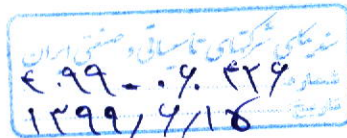 سندیکای شرکتهای تاسیساتی و صنعتی ایران
شماره ۴۰۹۹-۰۶۰۴۳۶
تاریخ ۱۳۹۹/۶/۱۵